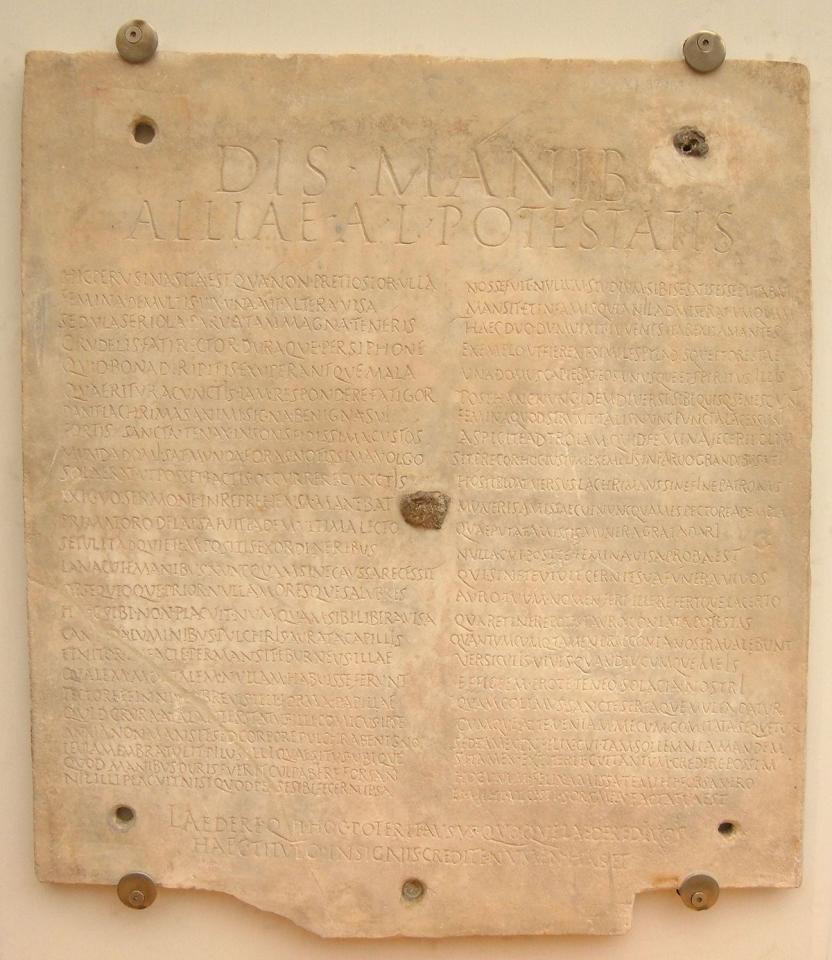 DIS · MANIB
ALLIAE · A · L · POTESTATIS
HIC PERVSINA SITA EST QVA NON PRETIOSIOR VLLA
FEMINA DE MVLTIS VIX VNA AVT ALTERA VISA
SEDVLA SERIOLA PARVA TAM MAGNA TENERIS
CRVDELIS FATI RECTOR DVRAQVE PERSIPHONE
QVID BONA DIRIPITIS EXVPERANTQVE MALA
QVAERITVR A CVNCTIS IAM RESPONDERE FATIGOR
DANT LACHRIMAS ANIMI SIGNA BENIGNA SVI
FORTIS SANCTA TENAX INSONS FIDISSIMA CVSTOS
MVNDA DOMI SAT MVNDA FORAS NOTISSIMA VOLGO
SOLA ERAT VT POSSET FACTIS OCCVRRERE CVNCTIS
EXIGVO SERMONE INREPREHENSA MANEBAT
PRIMA TORO DELAPSA FVIT EADEM VLTIMA LECTO
SE TVLIT AD QVIETEM POSITIS EX ORDINE REBVS
LANA CVI E MANIBVS NVNCQVAM SINE CAVSSA RECESSIT
OPSEQVIOQVE PRIOR NVLLA MORESQVE SALVBRES
HAEC SIBI NON PLACVIT NVMQVAM SIBI LIBERA VISA
CANDIDA LVMINIBVS PVLCHRIS AVRATA CAPILLIS
ET NITOR IN FACIE PERMANSIT EBVRNEVS ILLAE
QVALEM MORTALEM NVLLAM HABVISSE FERVNT
PECTORE ET IN NIVEO BREVIS ILLI FORMA PAPILLAE
QVID CRVRA ATALANTES STATVS ILLI COMICVS IPSE
ANXIA NON MANSIT SED CORPORE PVLCHRA BENIGNO
LEVIA MEMBRA TVLIT PILVS ILLI QVAESITVS VBIQVE
QVOD MANIBVS DVRIS FVERIT CVLPABERE FORSAN
NIL ILLI PLACVIT NISI QVOD PER SE SIBI FECERAT IPSA
NOSSE FVIT NVLLVM STVDIVM SIBI SE SATIS ESSE PVTABAT
MANSIT ET INFAMIS QVIA NIL ADMISERAT VMQVAM
HAEC DVO DVM VIXIT IVVENES ITA REXIT AMANTES
EXEMPLO VT FIERENT SIMILES PYLADISQVE ET ORESTAE
VNA DOMVS CAPIEBAT EOS VNVSQVE ET SPIRITVS ILLIS
POST HANC NVNC IDEM DIVERSI SIBI QVISQ SENESCVNT
FEMINA QVOD STRVXIT TALIS NVNC PVNCTA LACESSVNT
ASPICITE AD TROIAM QVID FEMINA FECERIT OLIM
SIT PRECOR HOC IVSTVM EXEMPLIS IN PARVO GRANDIBVS VTI
HOS TIBI DAT VERSVS LACHRIMANS SINE FINE PATRONVS
MVNERIS AMISSAE CVI NVNCQVAM ES PECTORE ADEMPTA
QVAE PVTAT AMISSIS MVNERA GRATA DARI
NVLLA CVI POST TE FEMINA VISA PROBA EST
QVI SINE TE VIVIT CERNIT SVA FVNERA VIVOS
AVRO TVVM NOMEN FERT ILLE REFERTQVE LACERTO
QVA RETINERE POTEST AVRO CONLATA POTESTAS
QVANTVMCVMQ TAMEN PRAECONIA NOSTRA VALEBVNT
VERSICVLIS VIVES QVANDIVCVMQVE MEIS
EFFIGIEM PRO TE TENEO SOLACIA NOSTRI
QVAM COLIMVS SANCTE SERTAQVE MVLTA DATVR
CVMQVE AT TE VENIAM MECVM COMITATA SEQVETVR
SED TAMEN INFELIX CVI TAM SOLLEMNIA MANDEM
SI TAMEN EXTITERIT CVI TANTVM CREDERE POSSIM
HOC VNVM FELIX AMISSA TE MIHI FORSAN ERO
EI MIHI VICISTI SORS MEA FACTA TVA EST
LAEDERE QVI HOC POTERIT AVSVS QVOQVE LAEDERE DIVOS
HAEC TITVLO INSIGNIS CREDITE NVMEN HABET